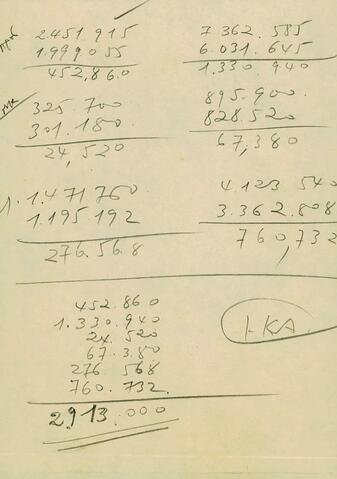 2451.915
1.999055
452,860
7362.585
6.031.645
1.330 940
325.700
301.180
24,520
895.900
828.520
67,380
1.471760
1.195.192
276.568
4.123 540
3.362.808
760,732
452.860
1.330.940
24.520
67.380
276 568
760.732
2913.000